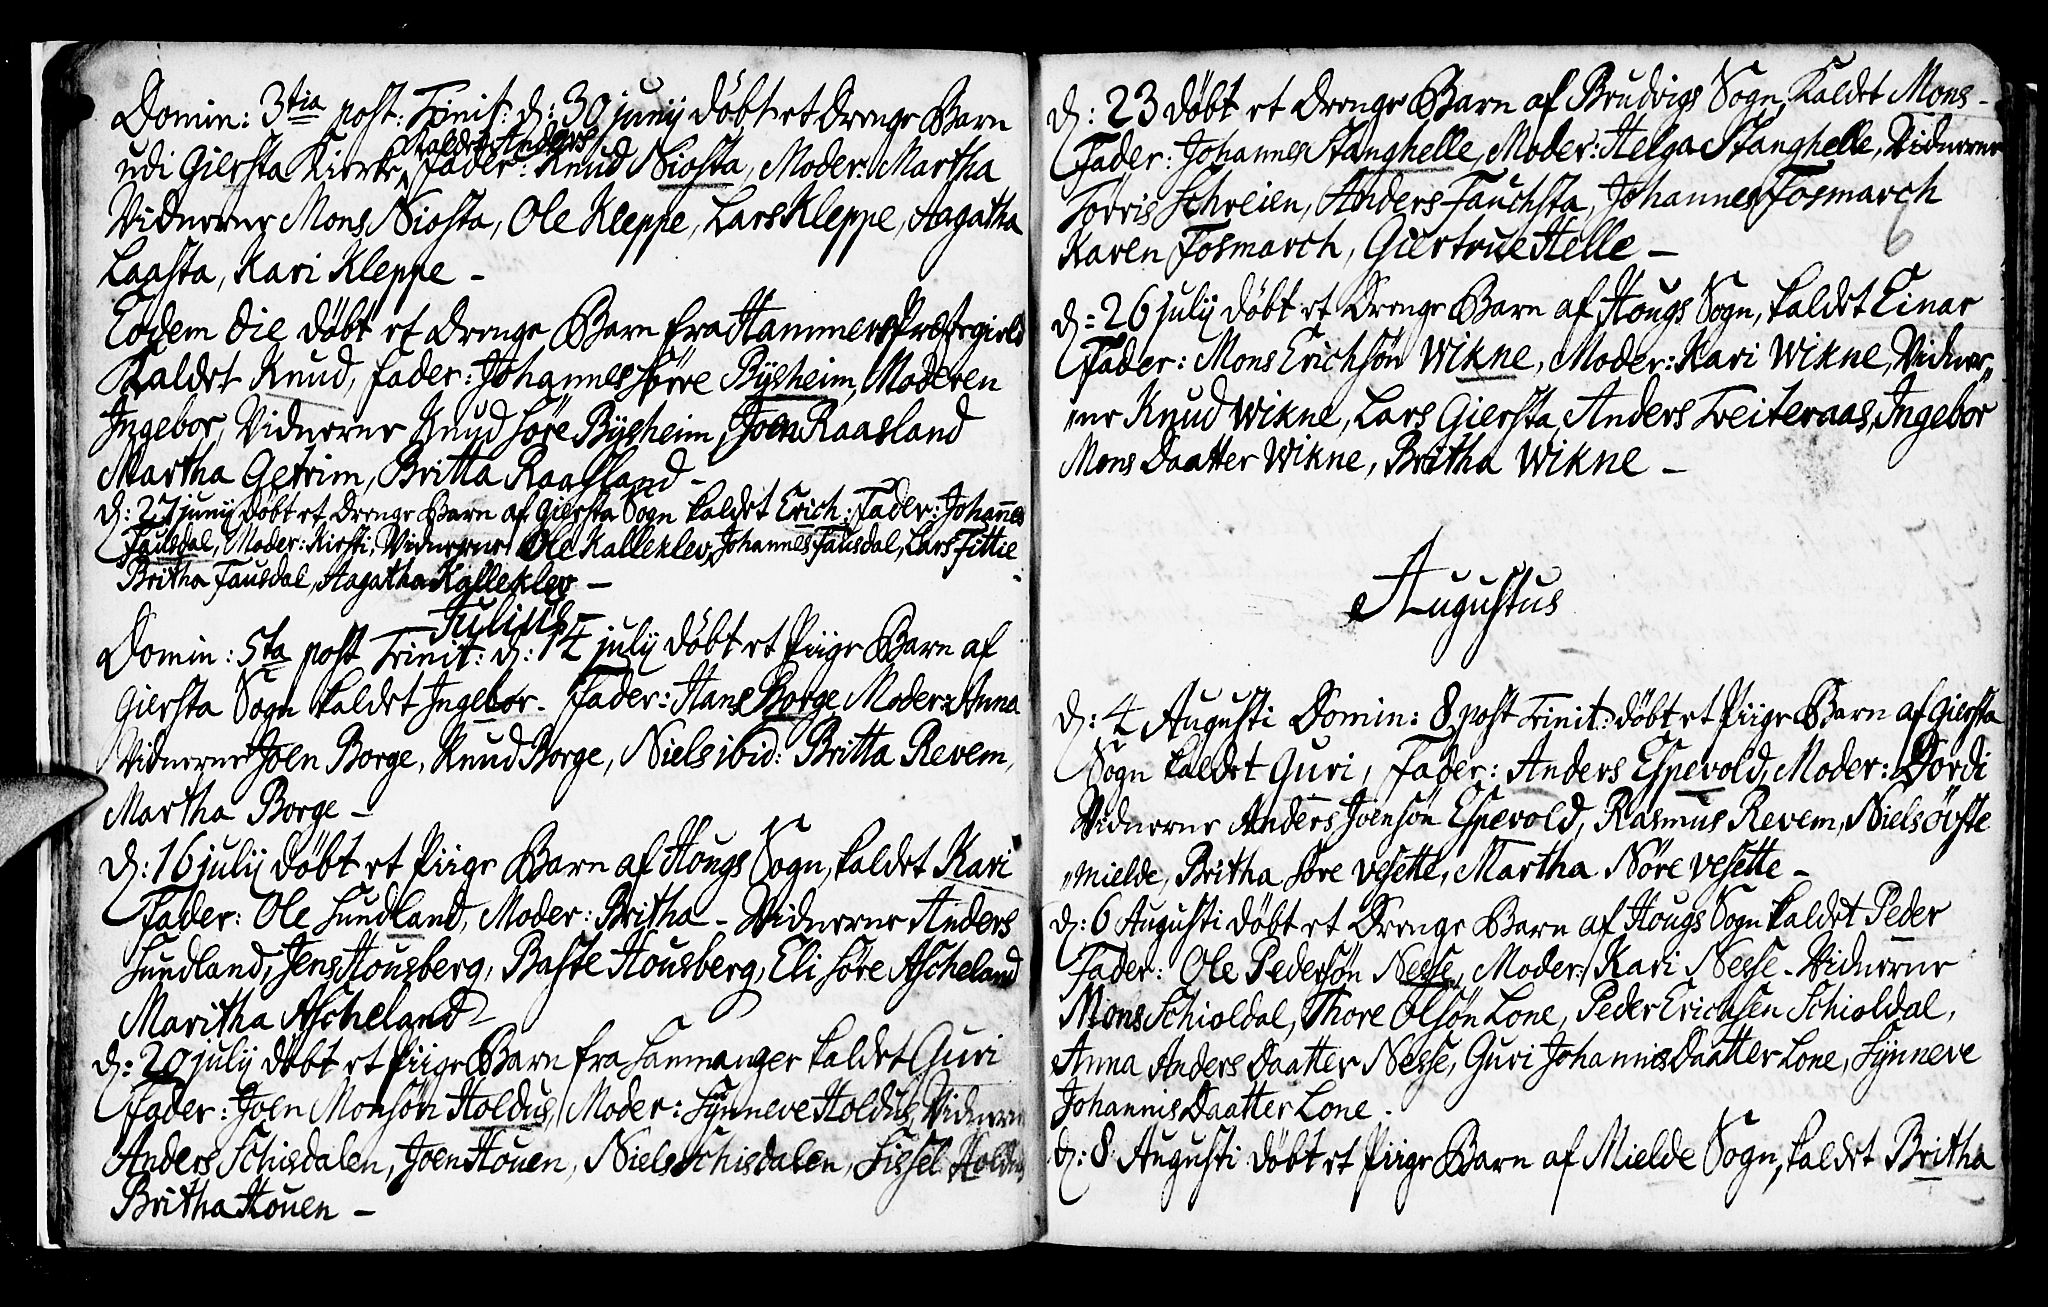 Domin: 3tia post: Trinit: d: 30 junij döbt et Drenge Barn
kaldet Anders
udi Giersta Kierke, Fader: Knud Niosta, Moder: Martha
Vidnerne Mons Niosta, Ole Kleppe, Lars Kleppe, Aagatha
Laasta, Kari Kleppe –
Eodem die döbt et Drenge Barn fra Hammers Præstegield
Kaldet Knud, fader: Johannes sörre Bÿsheim, Moderen
Ingebor, Vidnerne Knud söre Bÿsheim, Joen Raasland
Martha Getrim, Britta Raasland –
d: 27 junij döbt et Drenge Barn af Giersta Sogn kaldet Erich: Fader: Johannes
Fausdal, Moder: Kirsti, Vidnerne Ole Kalleklev, Johannes Fausdal, Lars Tittie
Britha Fausdal, Aagatha Kalleklev –
Julius –
Domin: 5ta post Trinit: d: 14 julij döbt et Piige Barn af
Giersta Sogn kaldet Ingebor. Fader: Hans Borge Moder: Anna
Vidnerne Joen Borge, Knud Borge, Niels ibid: Britta Revem,
Martha Borge –
d: 16 julij döbt et Piige Barn af Hougs Sogn, kaldet Kari
Fader: Ole Sundland, Moder: Britha – Vidnerne Anders
Sundland, Jens Housberg, Baste Housberg, Eli söre Ascheland
Maritha Ascheland –
d: 20 julij döbt et Piige Barn fra Sammanger kaldet Guri
Fader: Joen Monsön Holdus, Moder: Sÿnneve Holdus, Vidnerne
Anders Schisdalen, Joen Houen, Niels Schisdalen, Sissel Holdus
Britha Houen –
d: 23 döbt et Drenge Barn af Brudvigs Sogn, Kaldet Mons –
Fader: Johannes Stanghelle, Moder: Helga Stanghelle, Vidnerne
Torris Schreien, Anders Fauchsta, Johannes Fosmarch
Karen Fosmarch, Giertrue Helle –
6
d: 26 julij döbt et Drenge Barn af Hougs Sogn, kaldet Einar
Fader: Mons Erichsön Wikne, Moder: Kari Wikne, Vidner„
„ne Knud Wikne, Lars Giersta, Anders Treiteraas, Ingebor
Mons Daatter Wikne, Britha Wikne –
Augustus
d: 4 Augusti Domin: 8 post Trinit: döbt et Piige Barn af Giersta
Sogn kaldet Guri, Fader: Anders Espevold, Moder: Dordi
Vidnerne Anders Joensön Espevold, Rasmus Revem, Niels övste
„mielde, Britha söre Vesette, Martha Nöre Vesette –
d: 6 Augusti döbt et Drenge Barn af Hougs Sogn kaldet Peder
Fader: Ole Pedersön Nesse, Moder: Kari Nesse – Vidnerne
Mons Schioldal, Thore Olsön Lone, Peder Erichsen Schioldal,
Anna Anders Daatter Nesse, Guri Johannis Daatter Lone, Sÿnneve
Johannis Daatter Lone.
d: 8 Augusti döbt et Piige Barn af Mielde Sogn, kaldet Britha